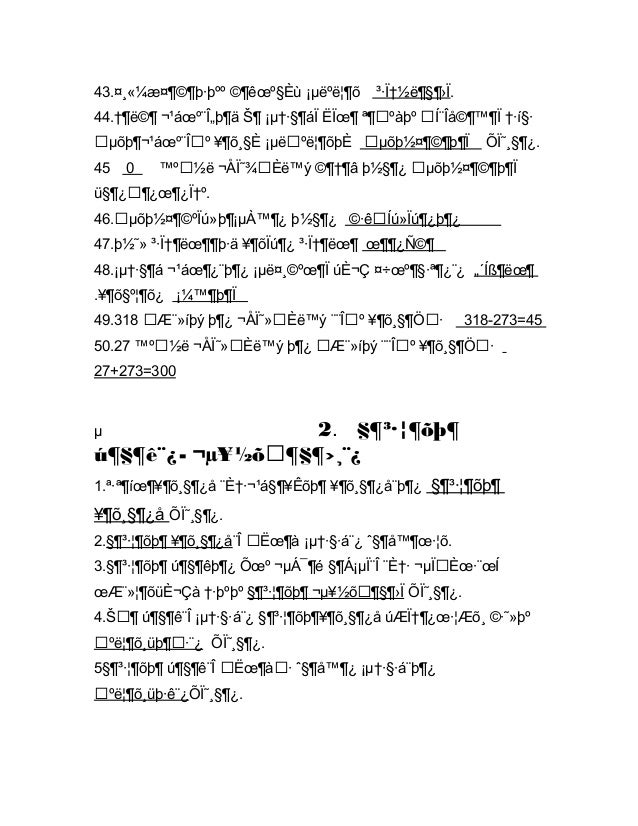 43.¤¸«¼æ¤¶©¶þ·þºº ©¶êœº§Èù ¡µëºë¦¶õ ³·Ï†½ë¶§¶›Ï.
44.†¶ë©¶ ¬¹áœº¨Î„þ¶ä Š¶ ¡µ†·§¶áÏ ËÏœ¶ ª¶□ºàþº □Í¨Îå©¶™¶Ï †·í§·
□µõþ¶¬¹áœº¨Î□º ¥¶õ¸§È ¡µë□ºë¦¶õþÈ □µõþ½¤¶©¶þ¶Ï ÕÏ˜¸§¶¿.
45 0 ™º□½ë ¬ÅÏ˜¾□Èë™ý ©¶†¶â þ½§¶¿ □µõþ½¤¶©¶þ¶Ï
ü§¶¿□¶¿œ¶¿Ï†º.
46.□µõþ½¤¶©ºÏú»þ¶¡µÀ™¶¿ þ½§¶¿ ©·ê□Íú»Ïú¶¿þ¶¿
47.þ½˜» ³·Ï†¶ëœ¶¶þ·ä ¥¶õÏú¶¿ ³·Ï†¶ëœ¶ œ¶¶¿Ñ©¶
48.¡µ†·§¶á ¬¹áœ¶¿¨þ¶¿ ¡µë¤¸©ºœ¶Ï úÈ¬Ç ¤÷œº¶§·ª¶¿¨¿ „´Íß¶ëœ¶
.¥¶õ§º¦¶õ¿ ¡¼™¶þ¶Ï
49.318 □Æ¨»íþý þ¶¿ ¬ÅÏ˜»□Èë™ý ¨¨Î□º ¥¶õ¸§¶Ö□· 318-273=45
50.27 ™º□½ë ¬ÅÏ˜»□Èë™ý þ¶¿ □Æ¨»íþý ¨¨Î□º ¥¶õ¸§¶Ö□·
27+273=300
µ 2. §¶³·¦¶õþ¶
ú¶§¶ê¨¿- ¬µ¥½õ□¶§¶›¸¨¿
1.ª·ª¶íœ¶¥¶õ¸§¶¿å ¨È†·¬¹á§¶¥Êõþ¶ ¥¶õ¸§¶¿å¨þ¶¿ §¶³·¦¶õþ¶
¥¶õ¸§¶¿å ÕÏ˜¸§¶¿.
2.§¶³·¦¶õþ¶ ¥¶õ¸§¶¿å¨Î □Ëœ¶à ¡µ†·§·á¨¿ ˆ§¶å™¶œ·¦õ.
3.§¶³·¦¶õþ¶ ú¶§¶êþ¶¿ Õœº ¬µÁ¯¶é §¶Á¡µÏ¨Î ¨È†· ¬µÏ□Èœ·¨œÍ
œÆ¨»¦¶õüÈ¬Çà †·þºþº §¶³·¦¶õþ¶ ¬µ¥½õ□¶§¶›Ï ÕÏ˜¸§¶¿.
4.Š□¶ ú¶§¶ê¨Î ¡µ†·§·á¨¿ §¶³·¦¶õþ¶¥¶õ¸§¶¿å úÆÏ†¶¿œ·¦Æõ¸ ©·˜»þº
□ºë¦¶õ¸üþ¶□·¨¿ ÕÏ˜¸§¶¿.
5§¶³·¦¶õþ¶ ú¶§¶ê¨Î □Ëœ¶à□· ˆ§¶å™¶¿ ¡µ†·§·á¨þ¶¿
□ºë¦¶õ¸üþ·ê¨¿ÕÏ˜¸§¶¿.